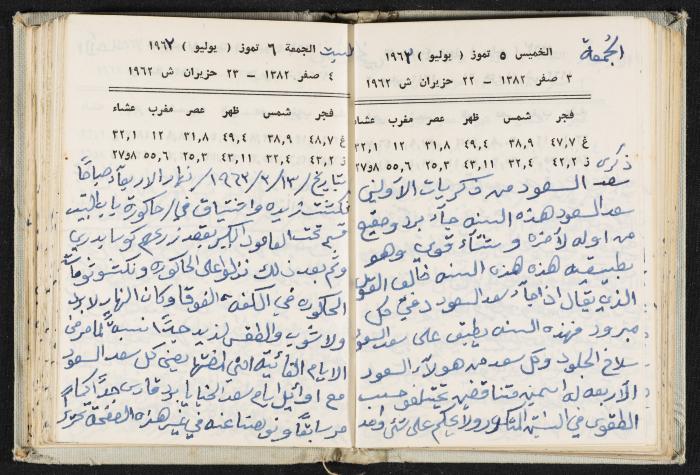 الجُمعة
الخميس ٥ تموز ( يوليو ) ١٩٦٣
٣ صفر ١٣٨٢ – ٢٢ حزيران ش ١٩٦٢
فجر شمس ظهر عصر مغرب عشاء
غ ٤٧,٧ ٣٨,٩ ٤٩,٤ ٣١,٨ ١٢ ٣٢,١
ز ٤٢,٢ ٣٢,٤ ٤٣,١١ ٢٥,٣ ٥٥,٦ ٨و٢٧
ذكرى
سعد السعود من ذكريات الأولين
سعد السعود هذه السنه جاء برد وصقيع
من اوله لآخره وشتاء قوي وهو
بطبيعيه هذه هذه السنه خالف القول
الذي يقال اذا جاء سعد السعود دفي كل
مبرود فهذه السنه يطبق على سعد السعود
سلاخ الجلود وكل سعد من هولاء السعود
الأربعه له اسمين متناقضين تختلف حسب
الطقوس في السنين المتكرره ولا يحكم على شئ واحد
السبت
الجمعة ٦ تموز ( يوليو ) ١٩٦٢
٤ صفر ١٣٨٢ – ٢٣ حزيران ش ١٩٦٢
فجر شمس ظهر عصر مغرب عشاء
غ ٤٨,٧ ٣٨,٩ ٤٩,٤ ٣١,٨ ١٢ ٣٢,١
ز ٤٣,٢ ٣٢,٤ ٤٣,١١ ٢٥,٣ ٥٥,٦ ٨و٢٧
بتاريخ /١٣/٣/١٩٦٣/ نهار الاربعاء صباحاً
نكشت زريعه واشتياق في / حاكورة باب البيت
قسم تحت العامود الكبير بقصد زرعهم كوسا بدري
وثم بعد ذلك نزلوا على الحاكوره ونكشو توما
الحاكوره في الكلفه الفوقا وكان النهار لا برد
ولا شوب والطقس لذيذ جداً نسبةً لما مر من
الايام الفائيه التي امضتها يعني كل سعد السعود
مع اوائل ايام سعد الخبايا برد قارس جداً كما
مر سابقاً ونوهنا عنه في غير هذه الصفحة